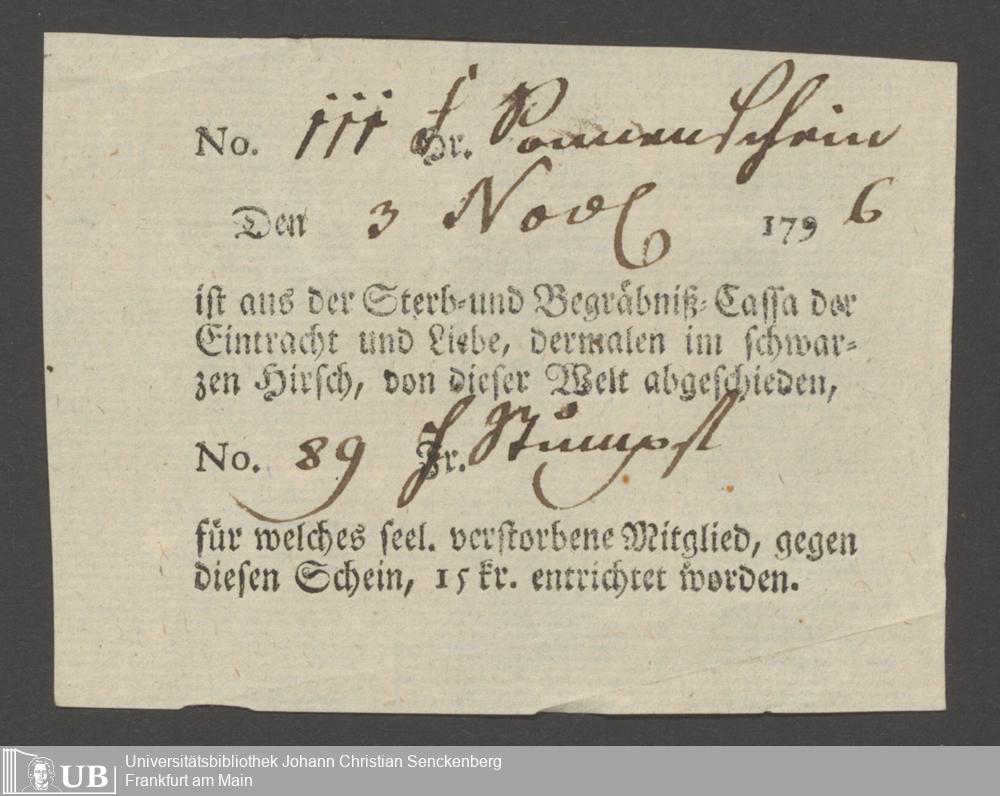 No. 111 Hr. Sonnenschein
Den 3 Nov 1796
ist aus der Sterb-und Begräbniß-Cassa der
Eintracht und Liebe, dermalen im schwar-
zen Hirsch, von dieser Welt abgeschieden,
No. 89 Fr. Stumpf
für welches seel. verstorbene Mitglied, gegen
diesen Schein, 15 kr. entrichtet worden.
UB
Universitätsbibliothek Johann Christian Senckenberg
Frankfurt am Main